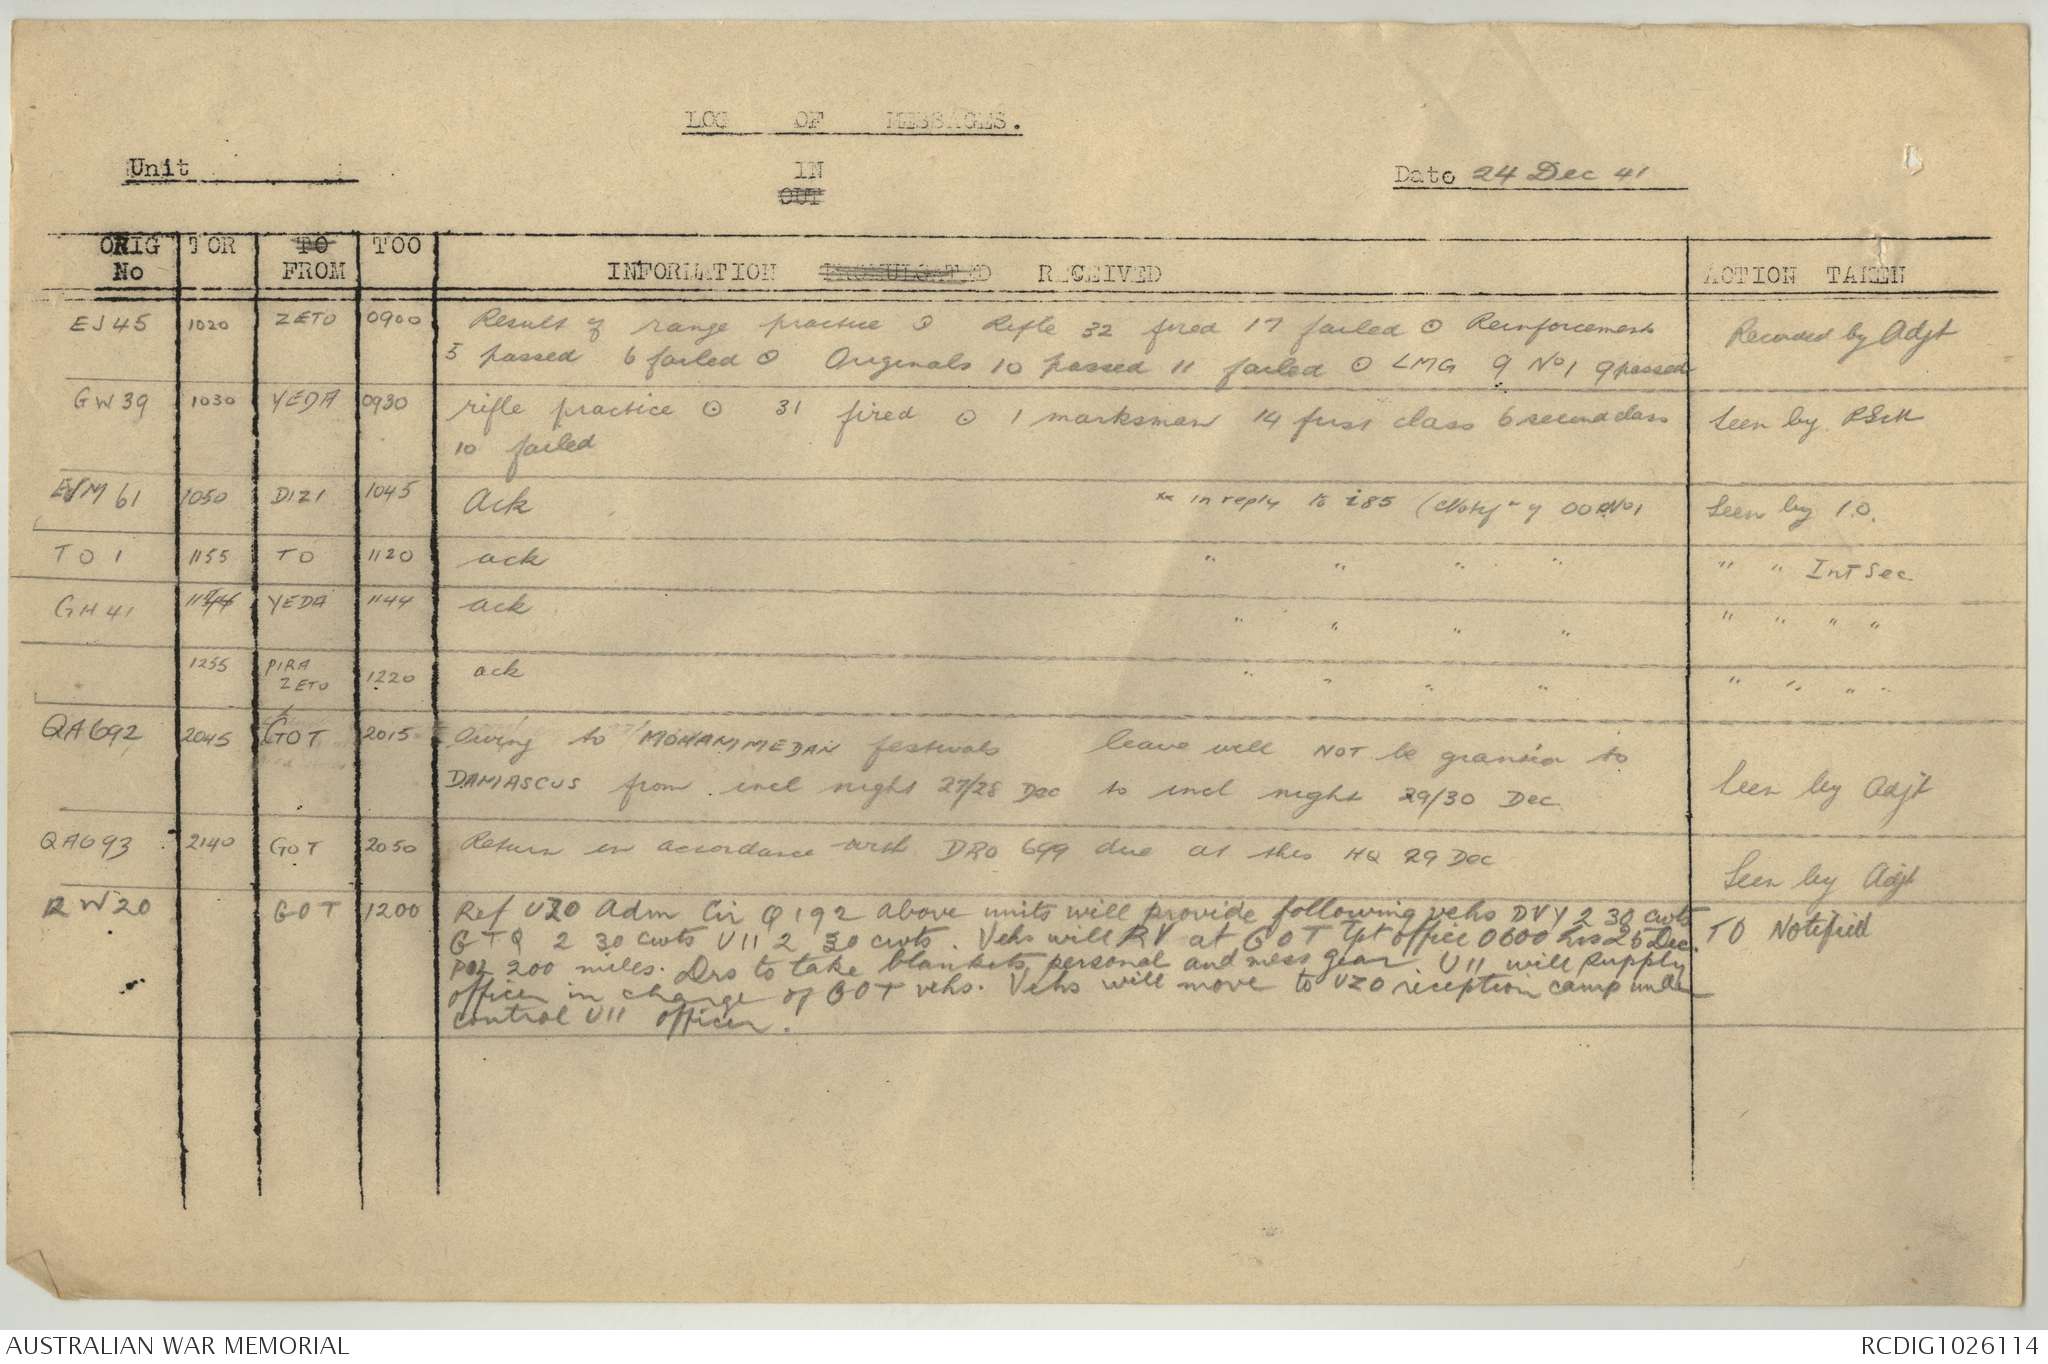 LOG OF MESSAGES.
Unit
IN
OUT
Date 24 Dec 41
ORIG No TOR TO FROM TOO INFORMATION PROMULGATED RECEIVED ACTION TAKEN
EJ45 1020 ZETO 0900 Result of range practice ⊙ Rifle 32 fired 17 failed ⊙ Reinforcements Recorded by Adjt
5 passed 6 failed ⊙ Originals 10 passed 11 failed ⊙ LMG 9 No1 9 passed
GW39 1030 YEDA 0930 rifle practice ⊙ 31 fired ⊙ 1 marksman 14 first class 6 second class Seen by
10 failed
61 1050 DIZI 1045 Ack in reply to i85 ( of OO No1 Seen by I.O.
TO 1 1155 TO 1120 ack " " " " " " Int Sec
GH41 YEDA 1144 ack " " " " " " " "
1255 PIRA ZETO 1220 ack " " " " " " " "
QA692 2045 GOT 2015 Owing to MOHAMMEDAN festivals leave will NOT be granted to
DAMASCUS from incl night 27/28 Dec to incl night 29/30 Dec Seen by Adjt
QA693 2140 GOT 2050 Return in accordance with DRO 699 due at this HQ 29 Dec Seen by Adjt
RW20 GOT 1200 Ref UZO Adm Cir Q192 above units will provide following vehs DVY 2 30 cwts
GTQ 2 30 cwts U11 2 30 cwts. Vehs will RV at GOT tpt office 0600 hrs 25 Dec. TO Notified
POL 200 miles. Drs to take blankets, personal and mess gear. U11 will supply
officer in charge of GOT vehs. Vehs will move to UZO reception camp under
control U11 officer.
AUSTRALIAN WAR MEMORIAL RCDIG1026114